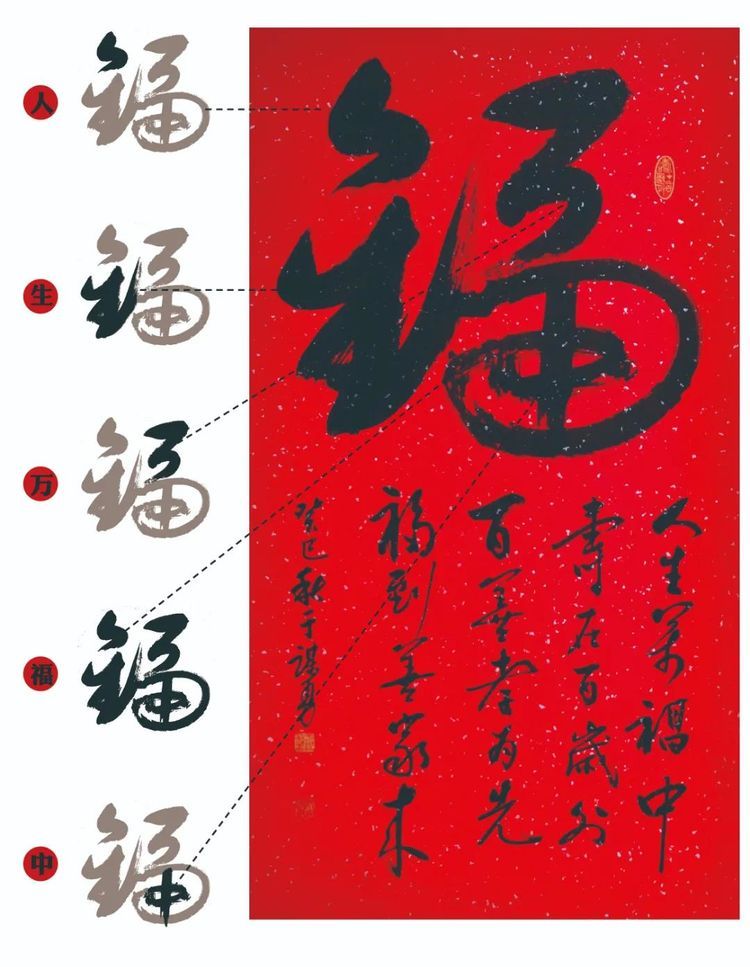 人
生
万
福
中
福
人生万福中
寿在百歲外
百善孝为先
福到善家来
癸巳秋于谋勇